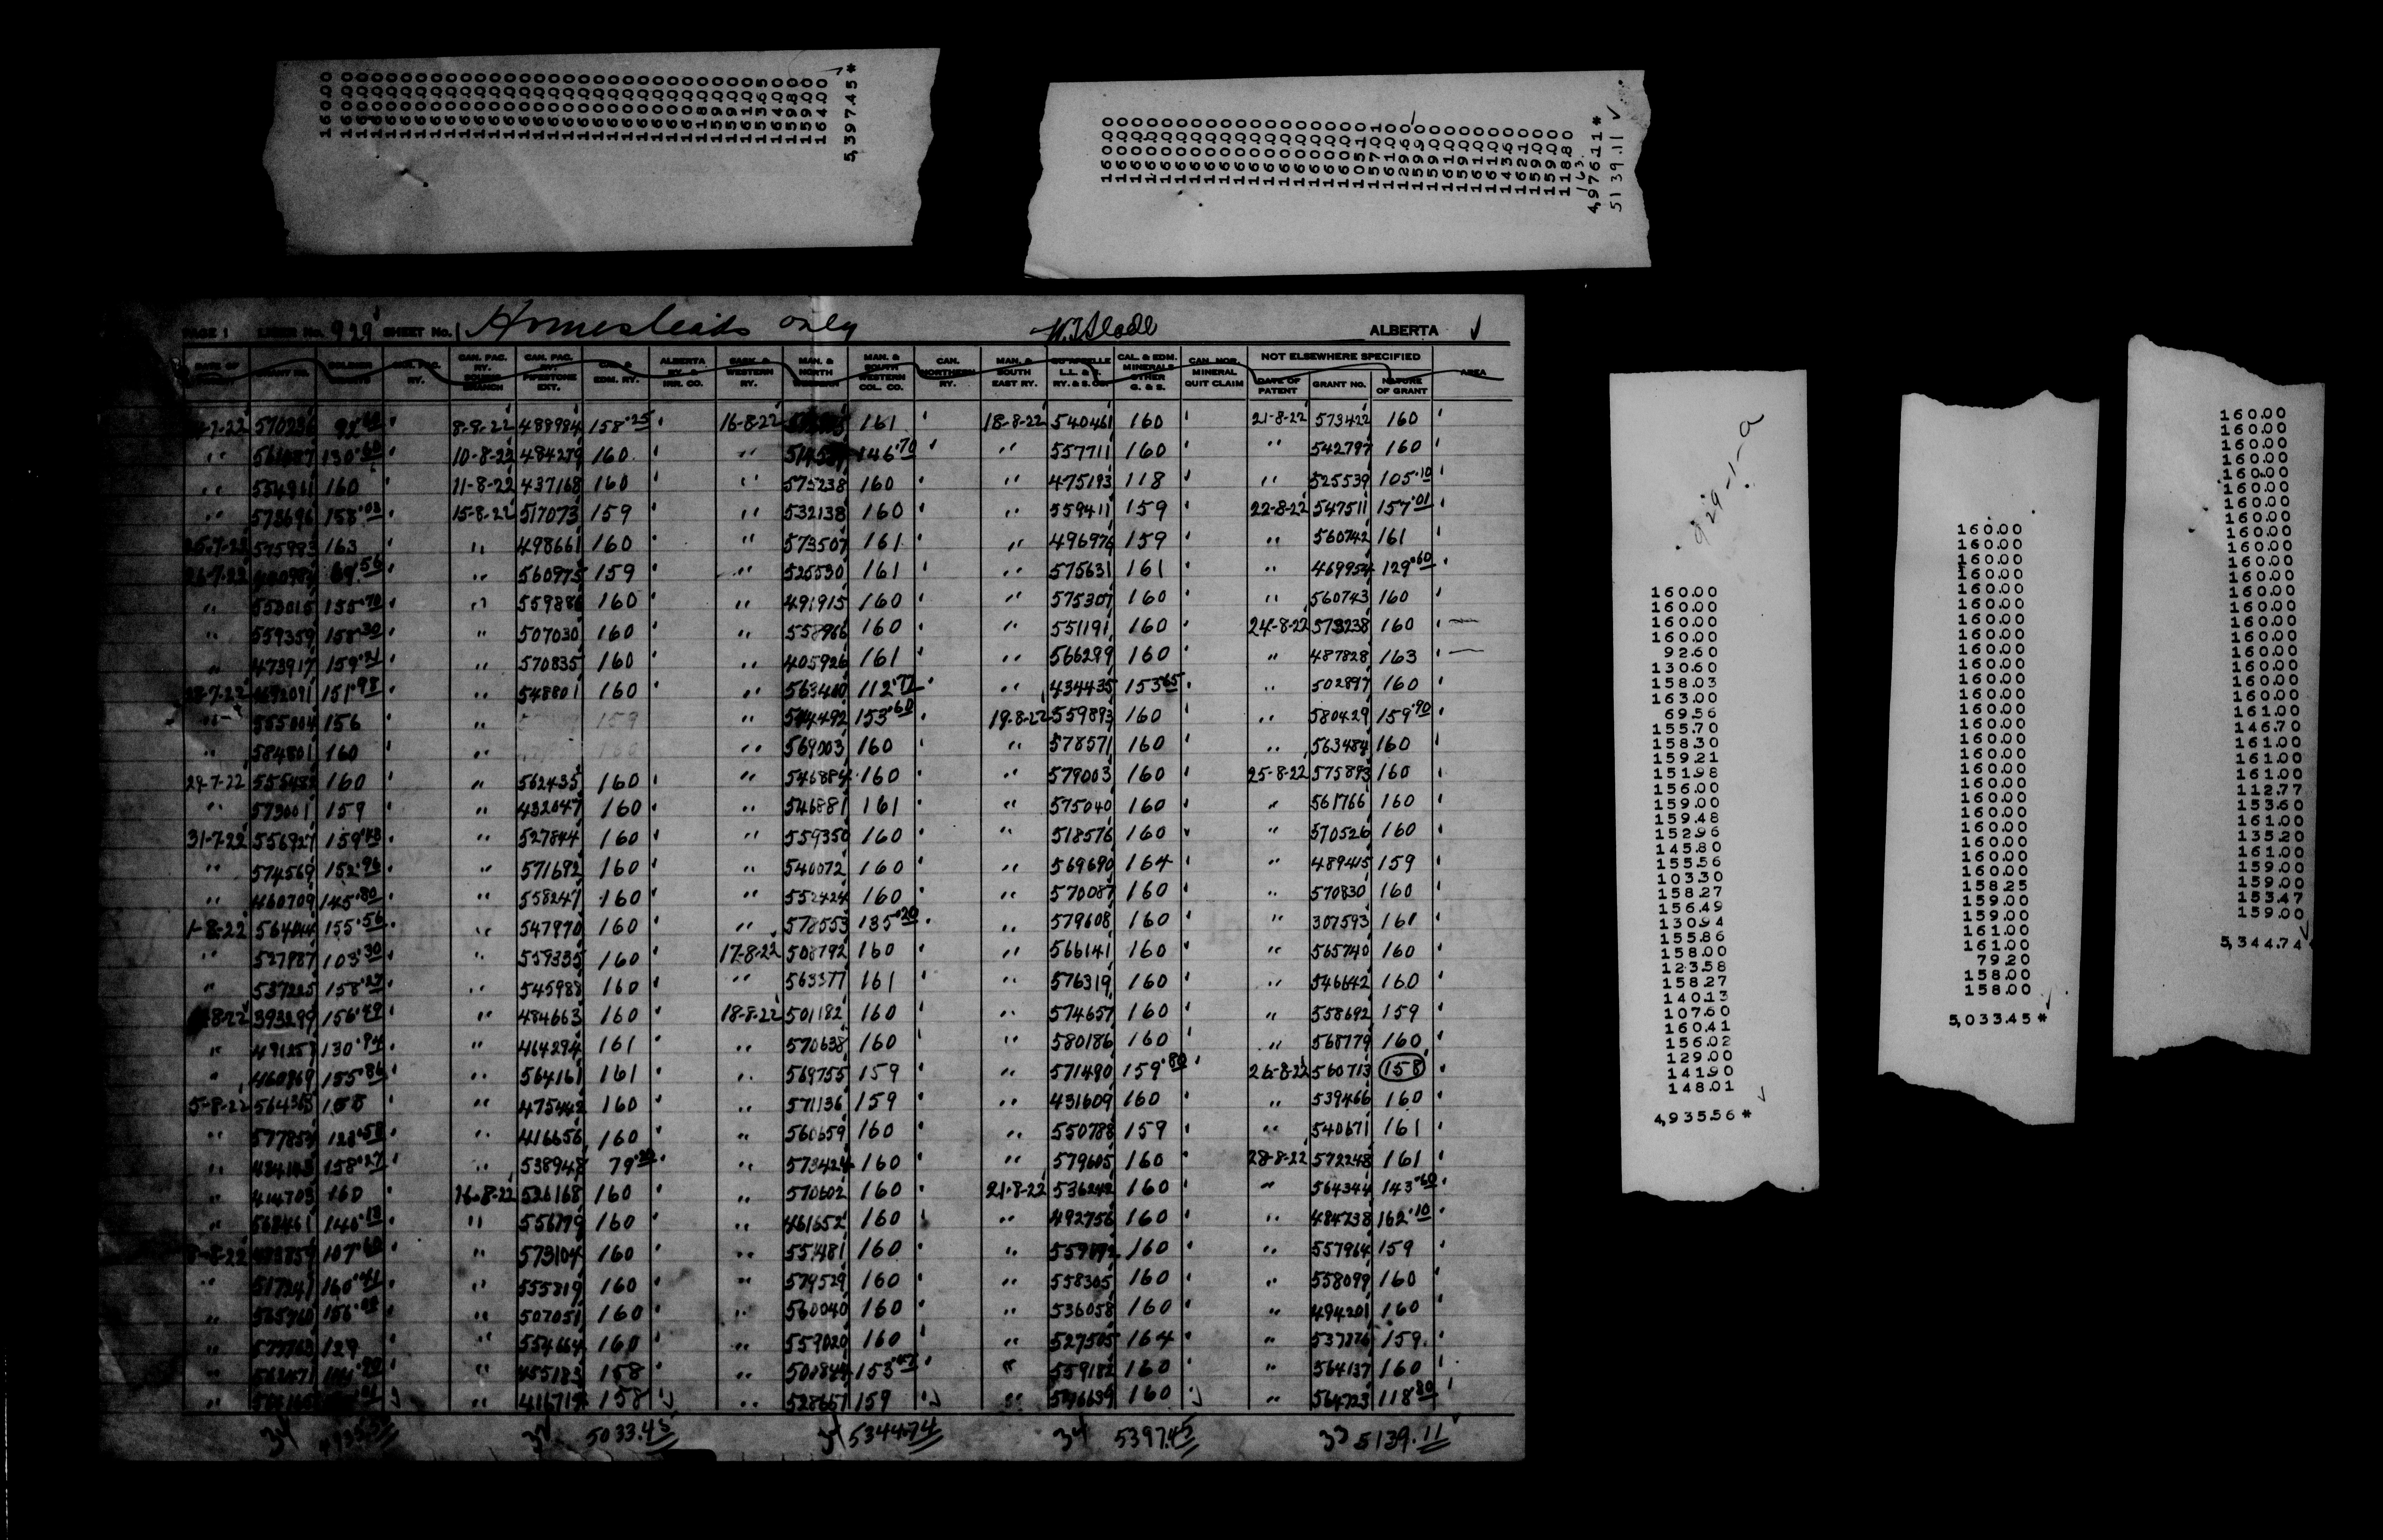 160.00
160.00
160.00
160.00
160.00
160.00
160.00
160.00
160.00
160.00
160.00
160.00
160.00
160.00
160.00
160.00
160.00
160.00
160.00
160.00
160.00
160.00
160.00
160.00
160.00
118.00
159.00
159.00
161.00
153.65
164.00
159.80
159.00
164.00
5,397.45*
160.00
160.00
160.00
160.00
160.00
160.00
160.00
160.00
160.00
160.00
160.00
160.00
160.00
160.00
160.00
160.00
160.00
105.10
157.01
161.00
129.60
159.90
159.00
161.00
159.00
161.00
161.00
143.60
162.10
159.00
159.00
118.80
163.
4,976.11*
5139.11 ✓
PAGE 1 LIBER No. 929 SHEET No. 1 Homesteads only W.T.Slade ALBERTA
CAN. PAC. RY. SOURIS BRANCH CAN. PAC. RY. PIPESTONE EXT. EDM. RY. ALBERTA RY. & IRR. CO. SASK. & WESTERN RY. MAN. & NORTH WESTERN MAN. & SOUTH WESTERN COL. CO. CAN. NORTHERN RY. MAN. & SOUTH EAST RY. QU'APPELLE L.L. & S. RY. & S. CO. CAL. & EDM. MINERALS OTHER G. & S. CAN. NOR. MINERAL QUIT CLAIM NOT ELSEWHERE SPECIFIED DATE OF PATENT GRANT NO. NATURE OF GRANT AREA
570236 92.60 8-8-22 488984 158.25 16-8-22 161 18-8-22 540461 160 21-8-22 573422 160
561087 130.60 10-8-22 484279 160 " 146.70 " 557711 160 " 542797 160
" 534911 160 11-8-22 437168 160 " 575238 160 " 475193 118 " 525539 105.10
" 573696 158.03 15-8-22 517073 159 " 532138 160 " 559411 159 22-8-22 547511 157.01
575983 163 " 498661 160 " 573507 161 " 496976 159 " 560742 161
26-7-22 69.56 " 560975 159 " 525530 161 " 575631 161 " 469954 129.60
" 155.70 " 559886 160 " 491915 160 " 575307 160 " 560743 160
" 559359 158.30 " 507030 160 " 558966 160 " 551191 160 24-8-22 573238 160
" 473917 159.21 " 570835 160 " 405926 161 " 566299 160 " 487828 163
151.98 " 548801 160 " 563460 112.77 " 434435 153.65 " 502897 160
" 555004 156 " 159 " 153.60 19-8-22 559893 160 " 580429 159.90
" 584801 160 " 160 " 569003 160 " 578571 160 " 563484 160
29-7-22 160 " 562435 160 " 546884 160 " 579003 160 25-8-22 575893 160
" 573001 159 " 432047 160 " 546881 161 " 575040 160 " 561766 160
31-7-22 556927 159.48 " 527844 160 " 559350 160 " 518576 160 " 570526 160
" 574569 152.96 " 571692 160 " 540072 160 " 569690 164 " 489415 159
" 460709 145.80 " 558247 160 " 552424 160 " 570087 160 " 570830 160
1-8-22 564044 155.56 " 547970 160 " 578553 135.20 " 579608 160 " 307593 161
" 527987 103.30 " 559335 160 17-8-22 508792 160 " 566141 160 " 565740 160
" 537225 158.27 " 545988 160 " 563377 161 " 576319 160 " 546642 160
393299 156.49 " 484663 160 18-8-22 501182 160 " 574657 160 " 558692 159
" 491257 130.94 " 464294 161 " 570638 160 " 580186 160 " 568779 160
" 460869 155.86 " 564161 161 " 569755 159 " 571490 159.80 26-8-22 560713 158
5-8-22 564368 158 " 475442 160 " 571136 159 " 431609 160 " 539466 160
" 577854 123.58 " 416656 160 " 560659 160 " 550788 159 " 540671 161
" 158.27 " 538948 79.20 " 573424 160 " 579605 160 28-8-22 572248 161
" 414703 160 16-8-22 526168 160 " 570602 160 21-8-22 536242 160 " 564344 143.60
" 140.13 " 556779 160 " 461652 160 " 492756 160 " 484738 162.10
8-8-22 107.60 " 573104 160 " 551481 160 " 160 " 557964 159
" 517241 160.41 " 555819 160 " 579529 160 " 558305 160 " 558099 160
" 156.02 " 507051 160 " 560040 160 " 536058 160 " 494201 160
" 129 " 554664 160 " 559020 160 " 527505 164 " 537876 159
" 141.90 " 455183 158 " 500844 153.47 " 559182 160 " 564137 160
" " 416717 158 " 528657 159 " 160 " 564723 118.80
34 5033.45 34 5344.74 34 5397.45 33 5139.11
929-1-a
160.00
160.00
160.00
160.00
92.60
130.60
158.03
163.00
69.56
155.70
158.30
159.21
151.98
156.00
159.00
159.48
152.96
145.80
155.56
103.30
158.27
156.49
130.94
155.86
158.00
123.58
158.27
140.13
107.60
160.41
156.02
129.00
141.90
148.01
4,935.56*
160.00
160.00
160.00
160.00
160.00
160.00
160.00
160.00
160.00
160.00
160.00
160.00
160.00
160.00
160.00
160.00
160.00
160.00
160.00
160.00
160.00
160.00
160.00
160.00
158.25
159.00
159.00
161.00
161.00
79.20
158.00
158.00
5,033.45*
160.00
160.00
160.00
160.00
160.00
160.00
160.00
160.00
160.00
160.00
160.00
160.00
160.00
160.00
160.00
160.00
160.00
160.00
160.00
160.00
161.00
146.70
161.00
161.00
161.00
112.77
153.60
161.00
135.20
161.00
159.00
159.00
153.47
159.00
5,344.74